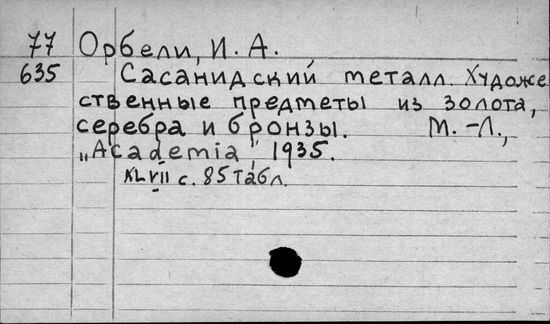 77 Орбели, И. А.
635 Сасанидский металл. Художе
ственные предметы из золота,
серебра и бронзы. М.-Л.,
„Academia", 1935.
XLVII с. 85 табл.